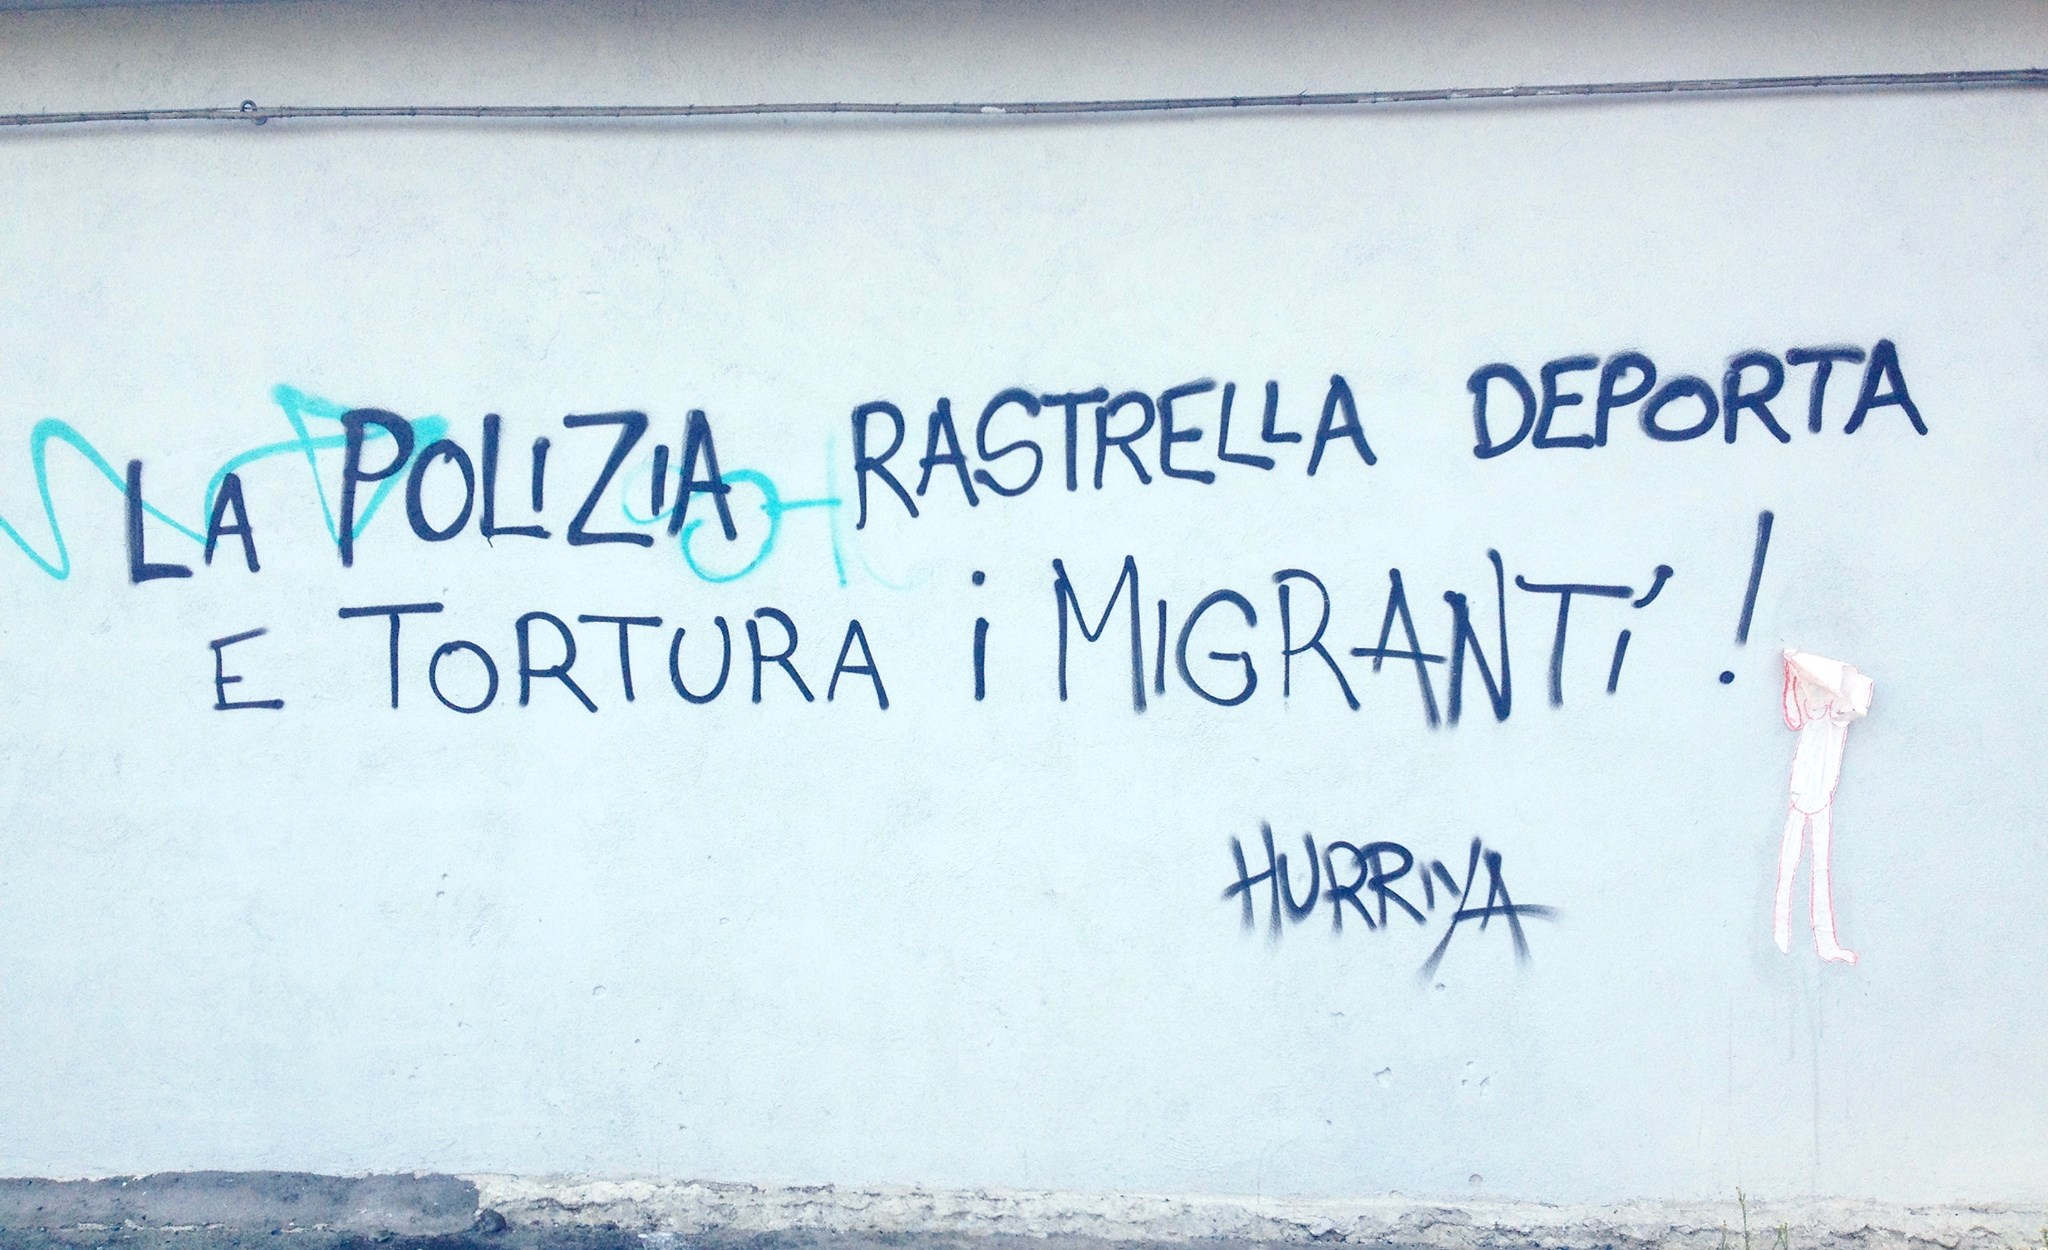 LA POLIZIA RASTRELLA DEPORTA
E TORTURA i MIGRANTI!
HURRIYA